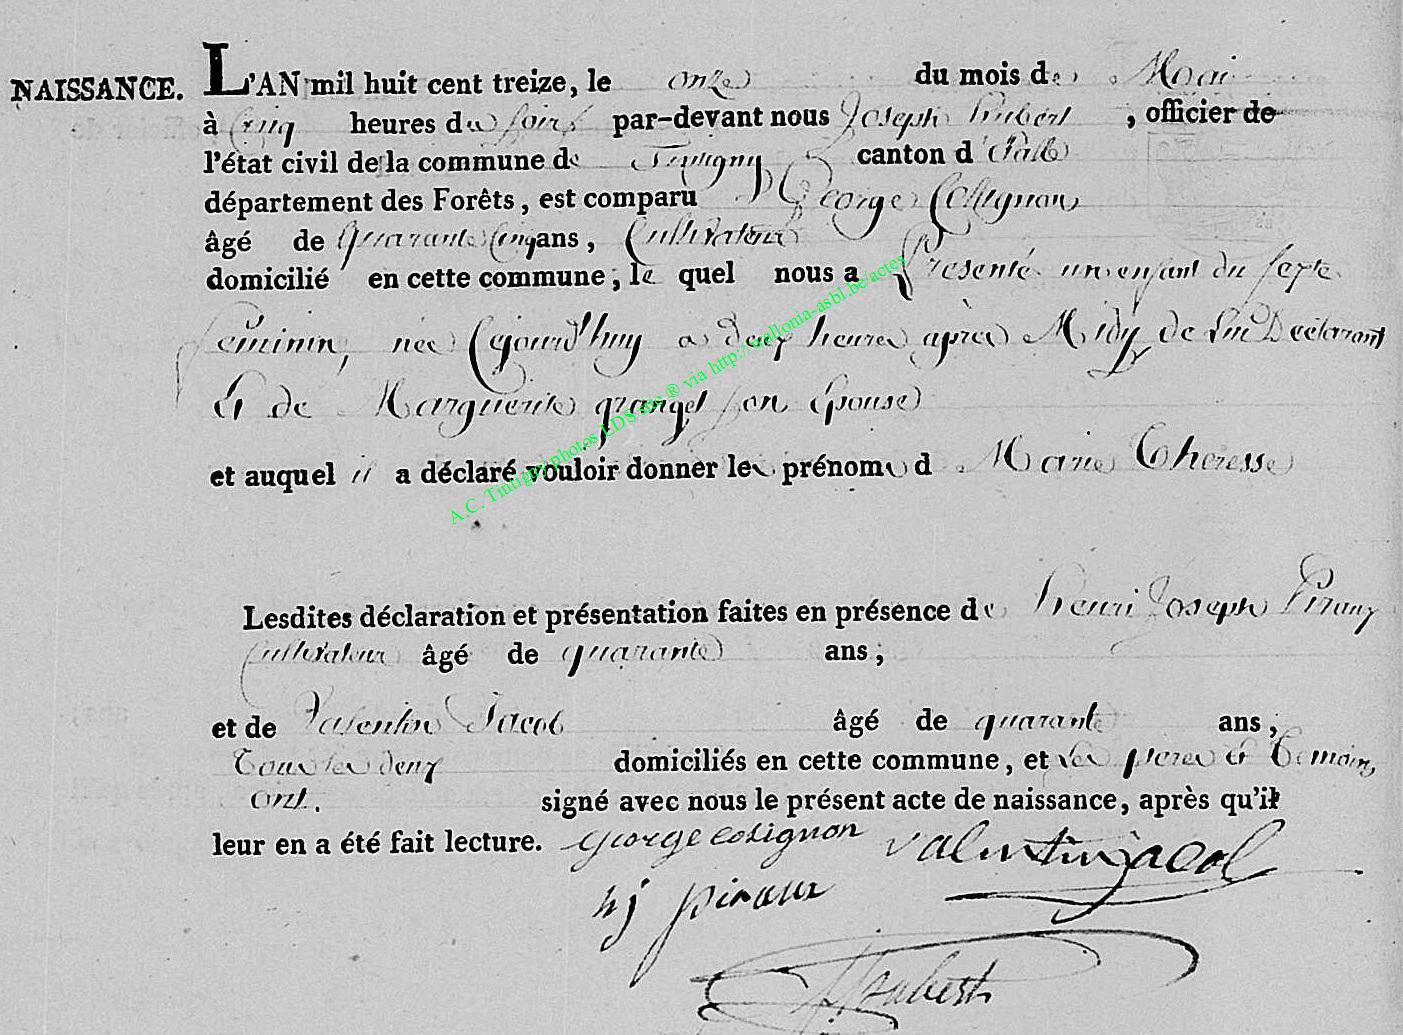 NAISSANCE. L'AN mil huit cent treize, le onze du mois de Mai
à Cinq heures du soir par-devant nous Joseph hubert, officier de
l'état civil de la commune de Tintigny canton d'Etalle
département des Forêts, est comparu George Collignon
âgé de quarante Cinq ans, Cultivateur
domicilié en cette commune; le quel nous a Présenté un enfant du sexte
féminin, née Cejourd'huy a deux heures après Midy de lui Déclarant
Et de Marguerite granget son Epouse
et auquel il a déclaré vouloir donner les prénoms d Marie Theresse
A.C. Tintigny photos LDS site ® via http://wallonia-asbl.be/actes
Lesdites déclaration et présentation faites en présence de henri Joseph Piraux
Cultivateur âgé de quarante ans;
et de Valentin Jacob âgé de quarante ans,
Tous les deux domiciliés en cette commune, et les peres et Temoins
ont. signé avec nous le présent acte de naissance, après qu'il
leur en a été fait lecture. george colignon valentin jacob
hj piraux
hubert